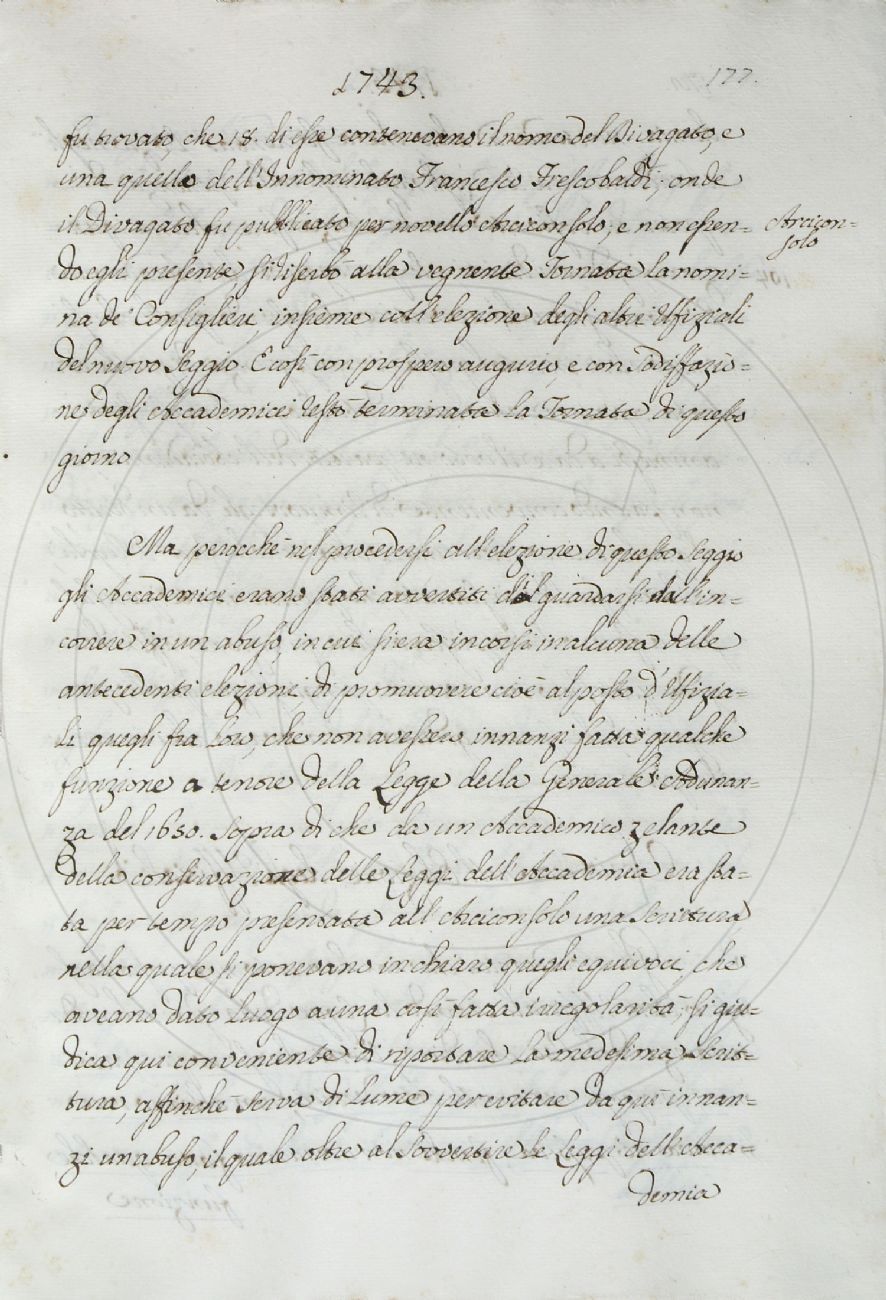 1743.
177.
fu trovato, che 18. di esse contenevano il nome del Divagato, e
una quello dell'Innominato Francesco Frescobaldi; onde
il Divagato fu pubblicato per novello Arciconsolo; e non essen=
do egli presente, si riserbò alla vegnente Tornata la nomi=
na de' Consiglieri, insieme coll'elezione degli altri Ufiziali
del nuovo Seggio. E così con prospero augurio, e con Sodisfazio=
ne degli Accademici restò terminata la Tornata di questo
giorno
Arcicon=
solo
Ma perocchè nel procedersi all'elezione di questo Seggio
gli Accademici erano stati avvertiti di guardarsi dall'in=
correre in un abuso, in cui si era incorsi in alcuna delle
antecedenti elezioni, di promuovere cioè al posto d'Ufizia=
li quegli fra loro, che non avessero innanzi fatta qualche
funzione a tenore della Legge della Generale Adunan=
za del 1650. Sopra di che da un Accademico zelante
della conservazione delle Leggi dell'Accademia era sta=
ta per tempo presentata all'Arciconsolo una Scrittura
nella quale si ponevano in chiaro quegli equivoci, che
aveano dato luogo a una così fatta irregolarità; si giu=
dica qui conveniente di riportare la medesima Scrit=
tura, affinchè serva di lume per evitare da quì innan=
zi un abuso, il quale oltre al Sovvertire le Leggi dell'Acca=
demia